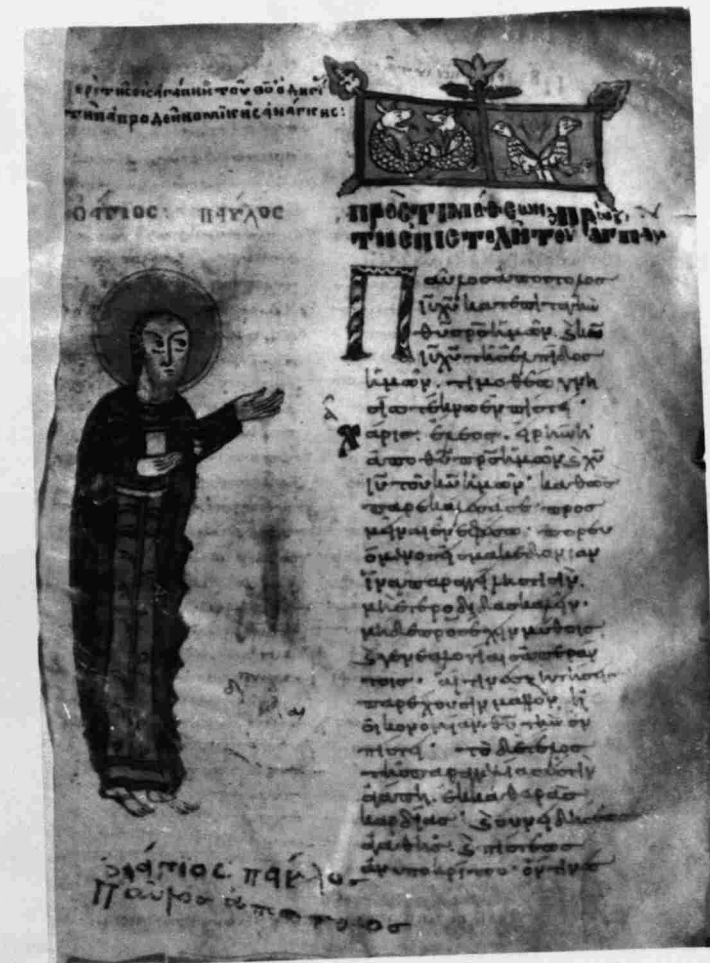 ὁ ἅγιος παῦλος
πρὸς τιμόθεων
τῆς ἐπιστολῆ τοῦ ἁγίου
Παῦλος ἀπόστολος
ἰῦ χῦ κατ ἐπιταγὴν
θῦ πρσ ἡμῶν. ϗ κῦ
ἰῦ χῦ τῆς ἐλπίδος
ἡμῶν. τιμοθέω γνη
σίω τέκνω ἐν πίστει·
χάρις. ἔλεος. εἰρήνη
ἀπὸ θῦ πρσ ἡμῶν ϗ χῦ
ἰῦ τοῦ κῦ ἡμῶν· καθὼς
παρεκάλεσά σε προς
μεῖναι ἐν ἐφέσω. πορευ
όμενος εἰς μακεδονίαν
ἵνα παραγγείλης τισὶν.
μὴ ἑτεροδιδασκαλεῖν.
μηδὲ προσέχειν μύθοις
ϗ γενεαλογίαις ἀπεράν
τοις· αἵτινες ζητήσεις
παρέχουσιν μᾶλλον. ἢ
οἰκονομίαν θῦ τὴν ἐν
πίστει· τὸ δὲ τέλος
τῆς παραγγελίας ἐστὶν
ἀγάπη. ἐκ καθαρᾶς
καρδίας· ϗ συνειδήσεως
ἀγαθῆς· ϗ πίστεως
ἀνυποκρίτου· ὧν τινες
ὁ ἅγιος παύλος
Παυλος αποστολος